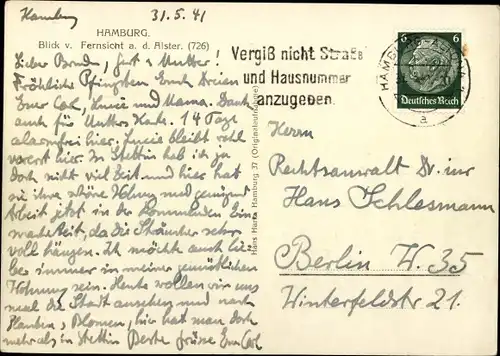 Hamburg 31.5.41
HAMBURG.
Blick v. Fernsicht a. d. Alster. (726)
Lieber Bruder, Gert u. Mutter!
Fröhliche Pfingsten Euch Dreien
Euer Carl, Lucie und Mama. Dank
auch für Mutters Karte. 14 Tage
alarmfrei hier, Lucie bleibt wohl
vorerst hier. In Stettin hab ich ja
doch nicht viel Zeit und hier hat
sie ihre schöne Wohnung und genügend
Arbeit jetzt in der
da die Sträucher sehr
voll hängen. Ich möchte auch lie-
ber immer in meiner gemütlichen
Wohnung sein. Heute wollen wir uns
mal die Stadt ansehen und nach
Blumen, hier hat man doch
mehr als in Stettin Beste Grüsse Euer Carl
Hans Hartz Hamburg 37 (Originalaufnahme)
Vergiß nicht Straße
und Hausnummer
anzugeben
HAMBURG
a
6 6
Deutsches Reich
Herrn
Rechtsanwalt Dr. jur
Hans Schlesmann
Berlin W. 35
Winterfeldstr 21.